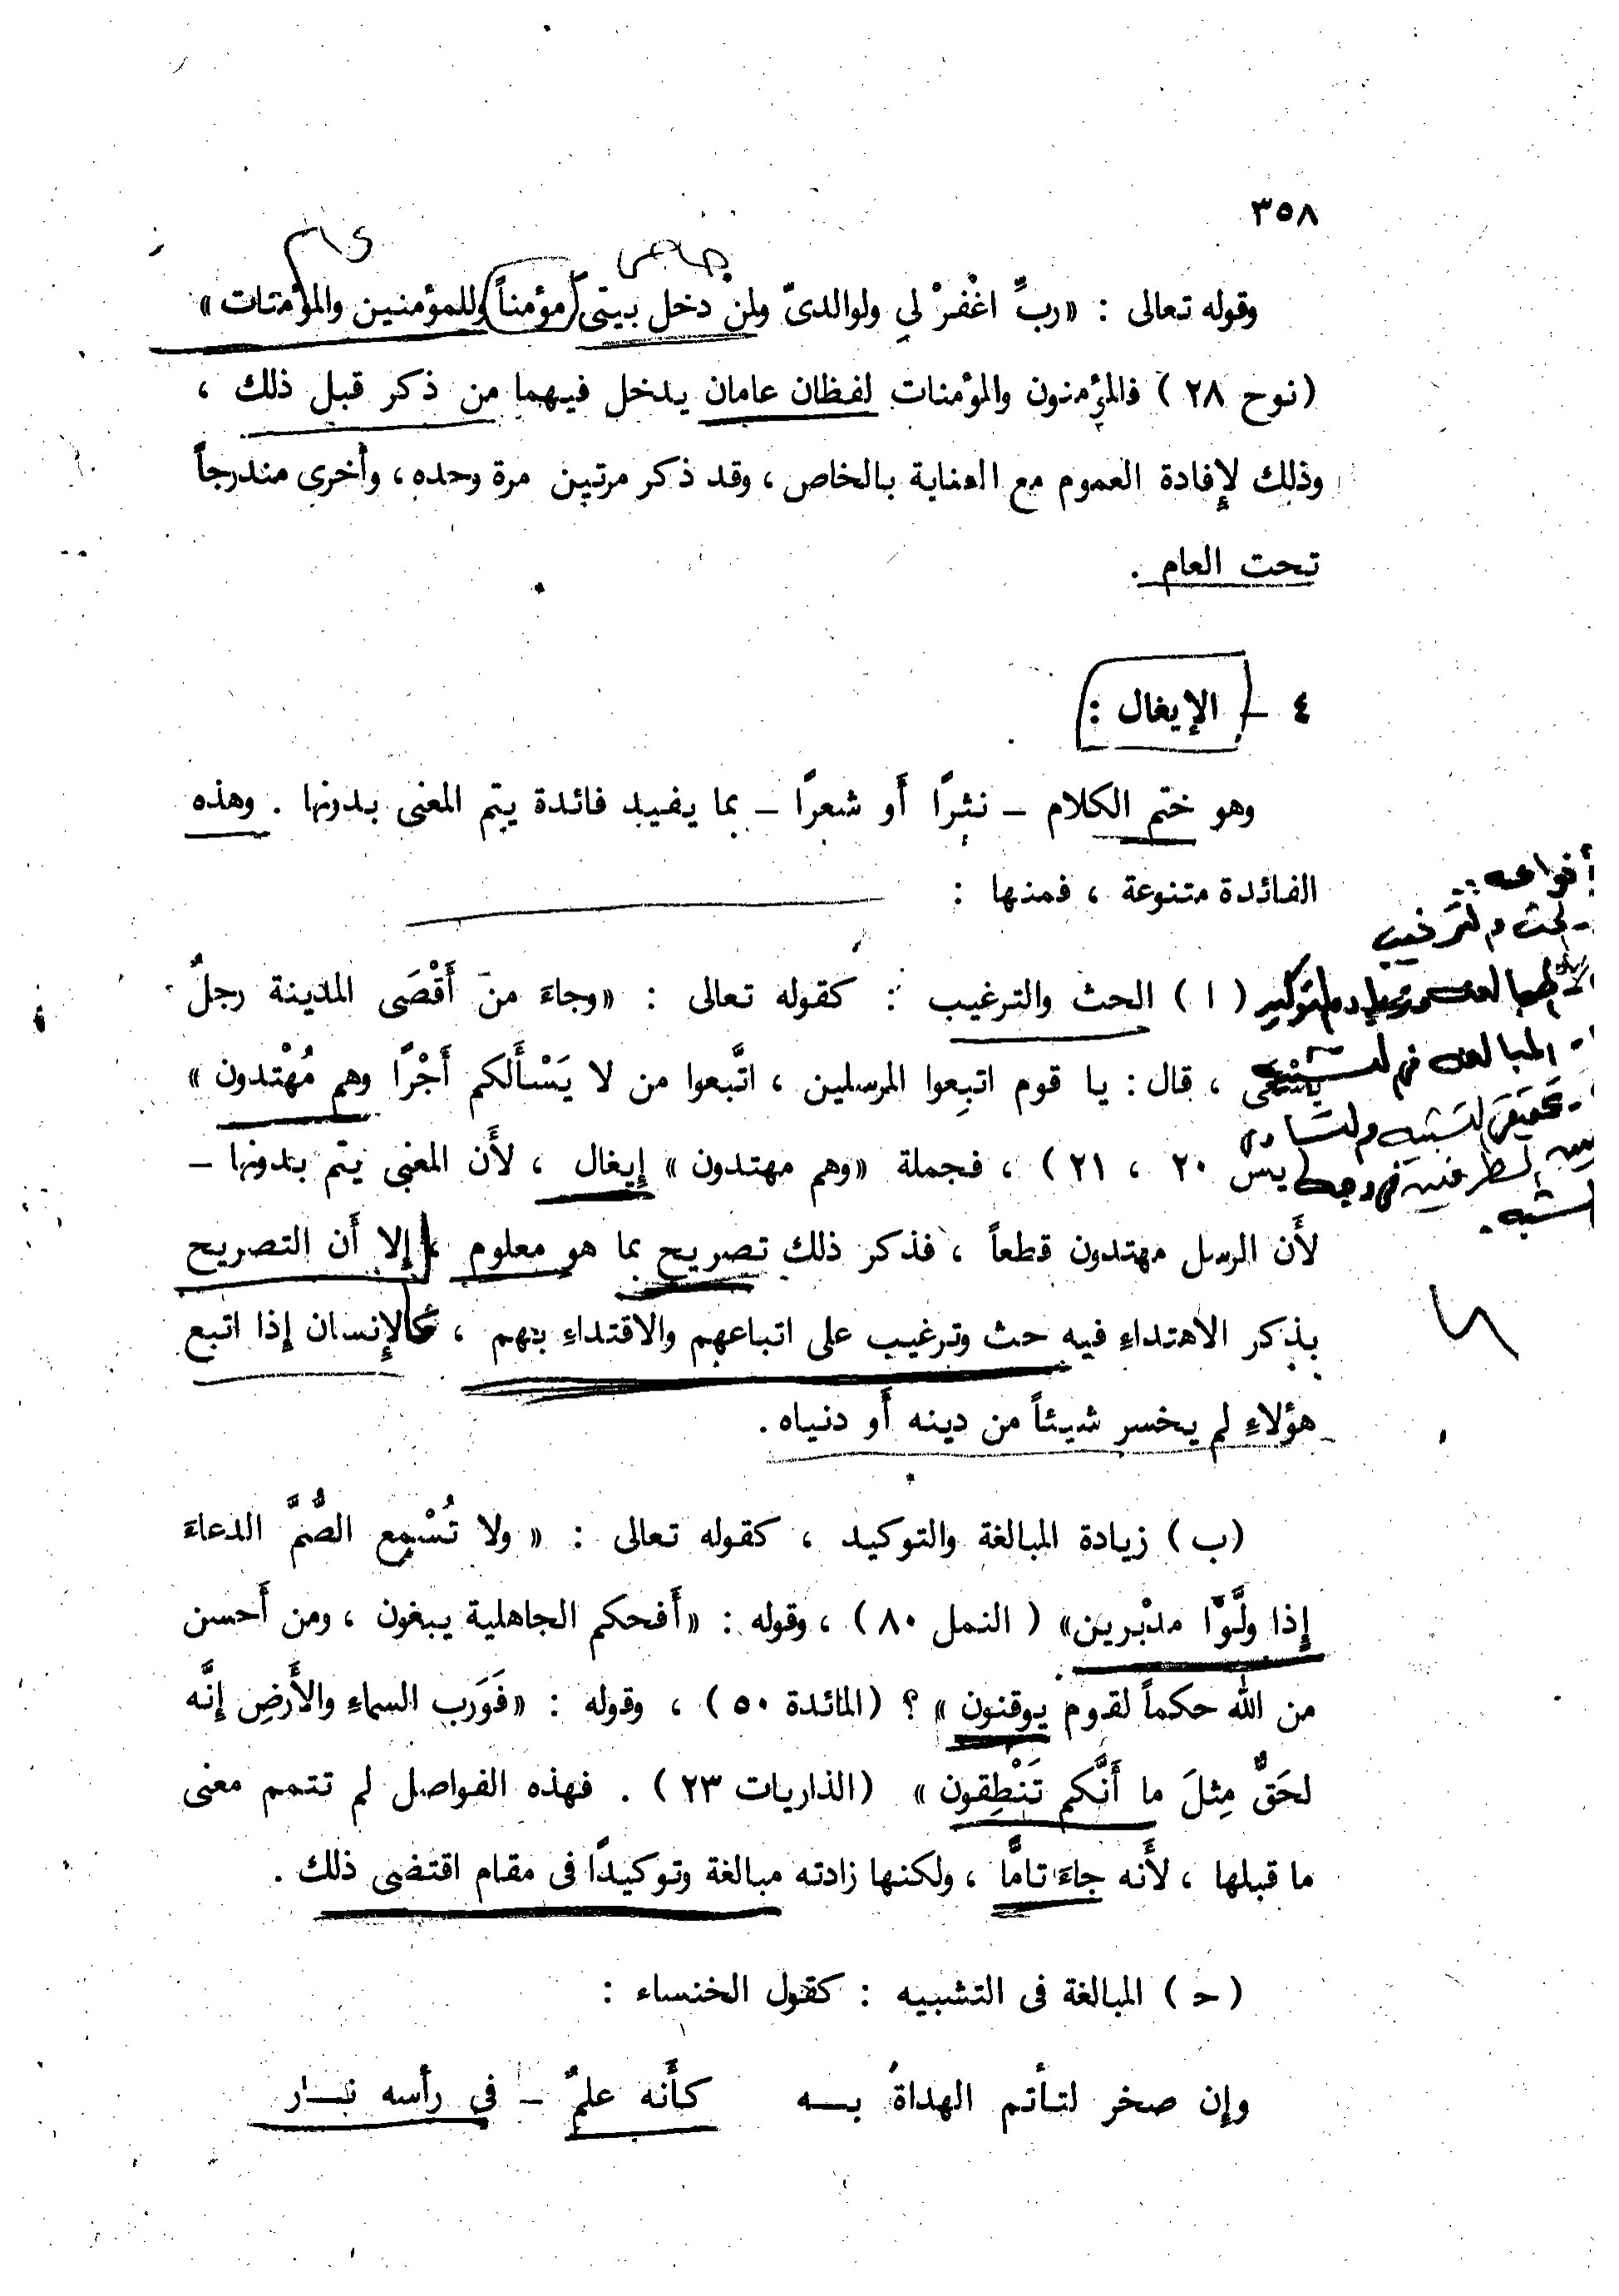 ٣٥٨
خاص
عام
وقوله تعالى : «ربِّ اغْفرْ لي ولوالدىّ ولمن دخل بيتى مؤمناً وللمؤمنين والمؤمنات»
(نوح ٢٨) فالمؤمنون والمؤمنات لفظان عامان يدخل فيهما من ذكر قبل ذلك ،
وذلك لإِفادة العموم مع العناية بالخاص ، وقد ذكر مرتين مرة وحده ، وأُخرى مندرجاً
تحت العام .
٤ – الإيغال :
وهو ختم الكلام – نثرًا أَو شعرًا – بما يفيد فائدة يتم المعنى بدونها . وهذه
الفائدة متنوعة ، فمنها :
أنواعه :
- الحث والترغيب
(ا) الحث والترغيب : كقوله تعالى : «وجاءَ من أَقْصَى المدينة رجلٌ
والتوكيد
- المبالغة في التشبيه
يسْعَى ، قال : يا قوم اتبِعوا المرسلين ، اتَّبعوا من لا يَسْأَلكم أَجْرًا وهم مُهْتدون»
- تحقيق التشبيه والتساوي
يسَ ٢٠ ، ٢١) ، فجملة «وهم مهتدون» إِيغال ، لأَن المعنى يتم بدونها –
بين الطرفين في وجه
الشبه .
لأَن الرسل مهتدون قطعاً ، فذكر ذلك تصريح بما هو معلوم ، إِلا أَن التصريح
بذكر الاهتداءِ فيه حث وترغيب على اتباعهم والاقتداءِ بهم ، فالإِنسان إِذا اتبع
هؤلاءِ لم يخسر شيئاً من دينه أَو دنياه .
(ب) زيادة المبالغة والتوكيد ، كقوله تعالى : «ولا تُسْمِع الصُّمَّ الدعاءَ
إِذا ولَّوْا مدْبرين» (النمل ٨٠) ، وقوله : «أَفحكم الجاهلية يبغون ، ومن أَحسن
من الله حكماً لقوم يوقنون» ؟ (المائدة ٥٠) ، وقوله : «فَوَرب السماءِ والأَرضِ إِنَّه
لحَقٌّ مِثلَ ما أَنَّكم تَنْطِقون» (الذاريات ٢٣) . فهذه الفواصل لم تتمم معنى
ما قبلها ، لأَنه جاءَ تامًّا ، ولكنها زادته مبالغة وتوكيدًا فى مقام اقتضى ذلك .
(ح) المبالغة فى التشبيه : كقول الخنساء :
وإن صخر لتأتم الهداةُ بـــه كأَنه علمٌ – فى رأسه نـــار